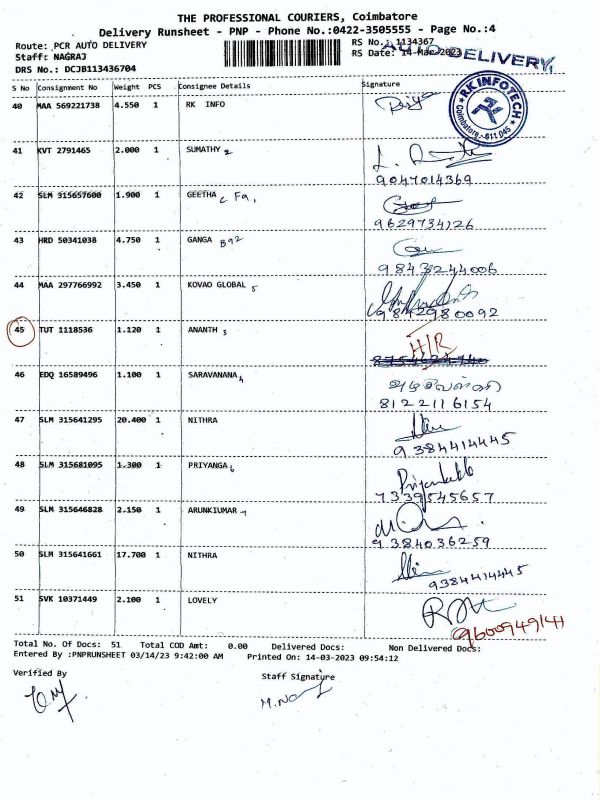 THE PROFESSIONAL COURIERS, Coimbatore
Delivery Runsheet - PNP - Phone No.:0422-3505555 - Page No.:4
Route: PCR AUTO DELIVERY RS No.: 1134367
Staff: NAGRAJ RS Date: 14-Mar-2023 DELIVERY
DRS No.: DCJB113436704
S No Consignment No Weight PCS Consignee Details Signature
40 MAA 569221738 4.550 1 RK INFO
RK INFOTECH
Coimbatore - 641 045
41 KVT 2791465 2.000 1 SUMATHY 2
9047014369
42 SLM 315657600 1.900 1 GEETHA
9629734126
43 HRD 50341038 4.750 1 GANGA B92
9843244006
44 MAA 297766992 3.450 1 KOVAO GLOBAL 5
9842980092
45 TUT 1118536 1.120 1 ANANTH 3
H/R
46 EDQ 16589496 1.100 1 SARAVANANA
8122116154
47 SLM 315641295 20.400 1 NITHRA
9384414445
48 SLM 315681095 1.300 1 PRIYANGA 6
7339545657
49 SLM 315646828 2.150 1 ARUNKIUMAR
9384036259
50 SLM 315641661 17.700 1 NITHRA
9384414445
51 SVK 10371449 2.100 1 LOVELY
9600949141
Total No. Of Docs: 51 Total COD Amt: 0.00 Delivered Docs: Non Delivered Docs:
Entered By :PNPRUNSHEET 03/14/23 9:42:00 AM Printed On: 14-03-2023 09:54:12
Verified By Staff Signature